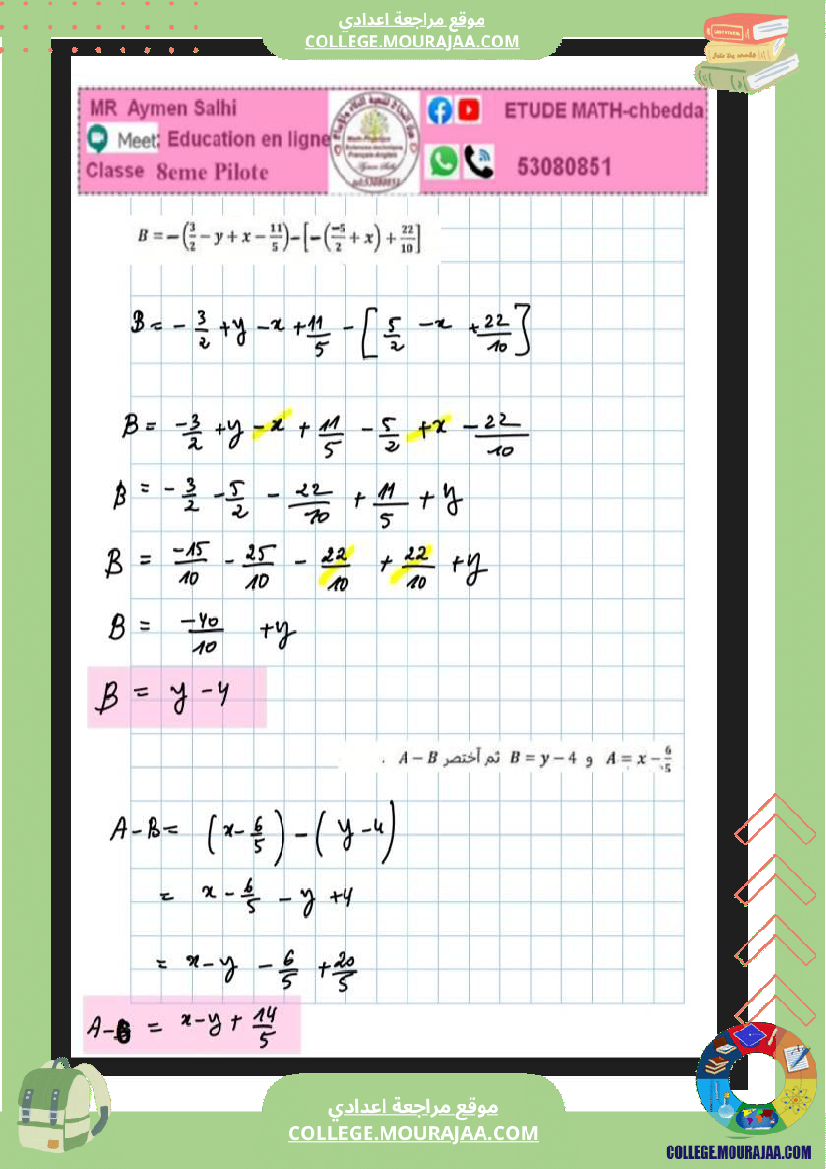 موقع مراجعة اعدادي
COLLEGE.MOURAJAA.COM
MR Aymen Salhi
Meet: Education en ligne
Classe 8eme Pilote
ETUDE MATH-chbedda
53080851
B = −(3/2 − y + x − 11/5) − [−(−5/2 + x) + 22/10]
B = − 3/2 + y − x + 11/5 − [5/2 − x + 22/10]
B = −3/2 + y − x + 11/5 − 5/2 + x − 22/10
B = − 3/2 − 5/2 − 22/10 + 11/5 + y
B = −15/10 − 25/10 − 22/10 + 22/10 + y
B = −40/10 + y
B = y − 4
A = x − 6/5 و B = y − 4 ثم أختصر A − B .
A − B = (x − 6/5) − (y − 4)
= x − 6/5 − y + 4
= x − y − 6/5 + 20/5
A − B = x − y + 14/5
موقع مراجعة اعدادي
COLLEGE.MOURAJAA.COM
COLLEGE.MOURAJAA.COM